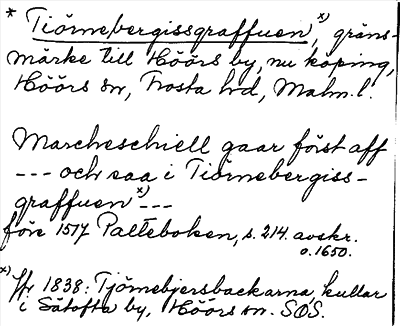 * Tiörnebergissgraffuen, x) gräns-
märke till Höörs by, nu köping,
Höörs sn, Frosta hd, Malm. l.
Marcheschiell gaar först aff
--- och saa i Tiörnebergiss-
graffuen x) ---
före 1517 Palteboken, s. 214. avskr.
o. 1650.
x) Jfr 1838: Tjörnebjersbackarna, kullar
i Sätofta by, Höörs sn. SOS.